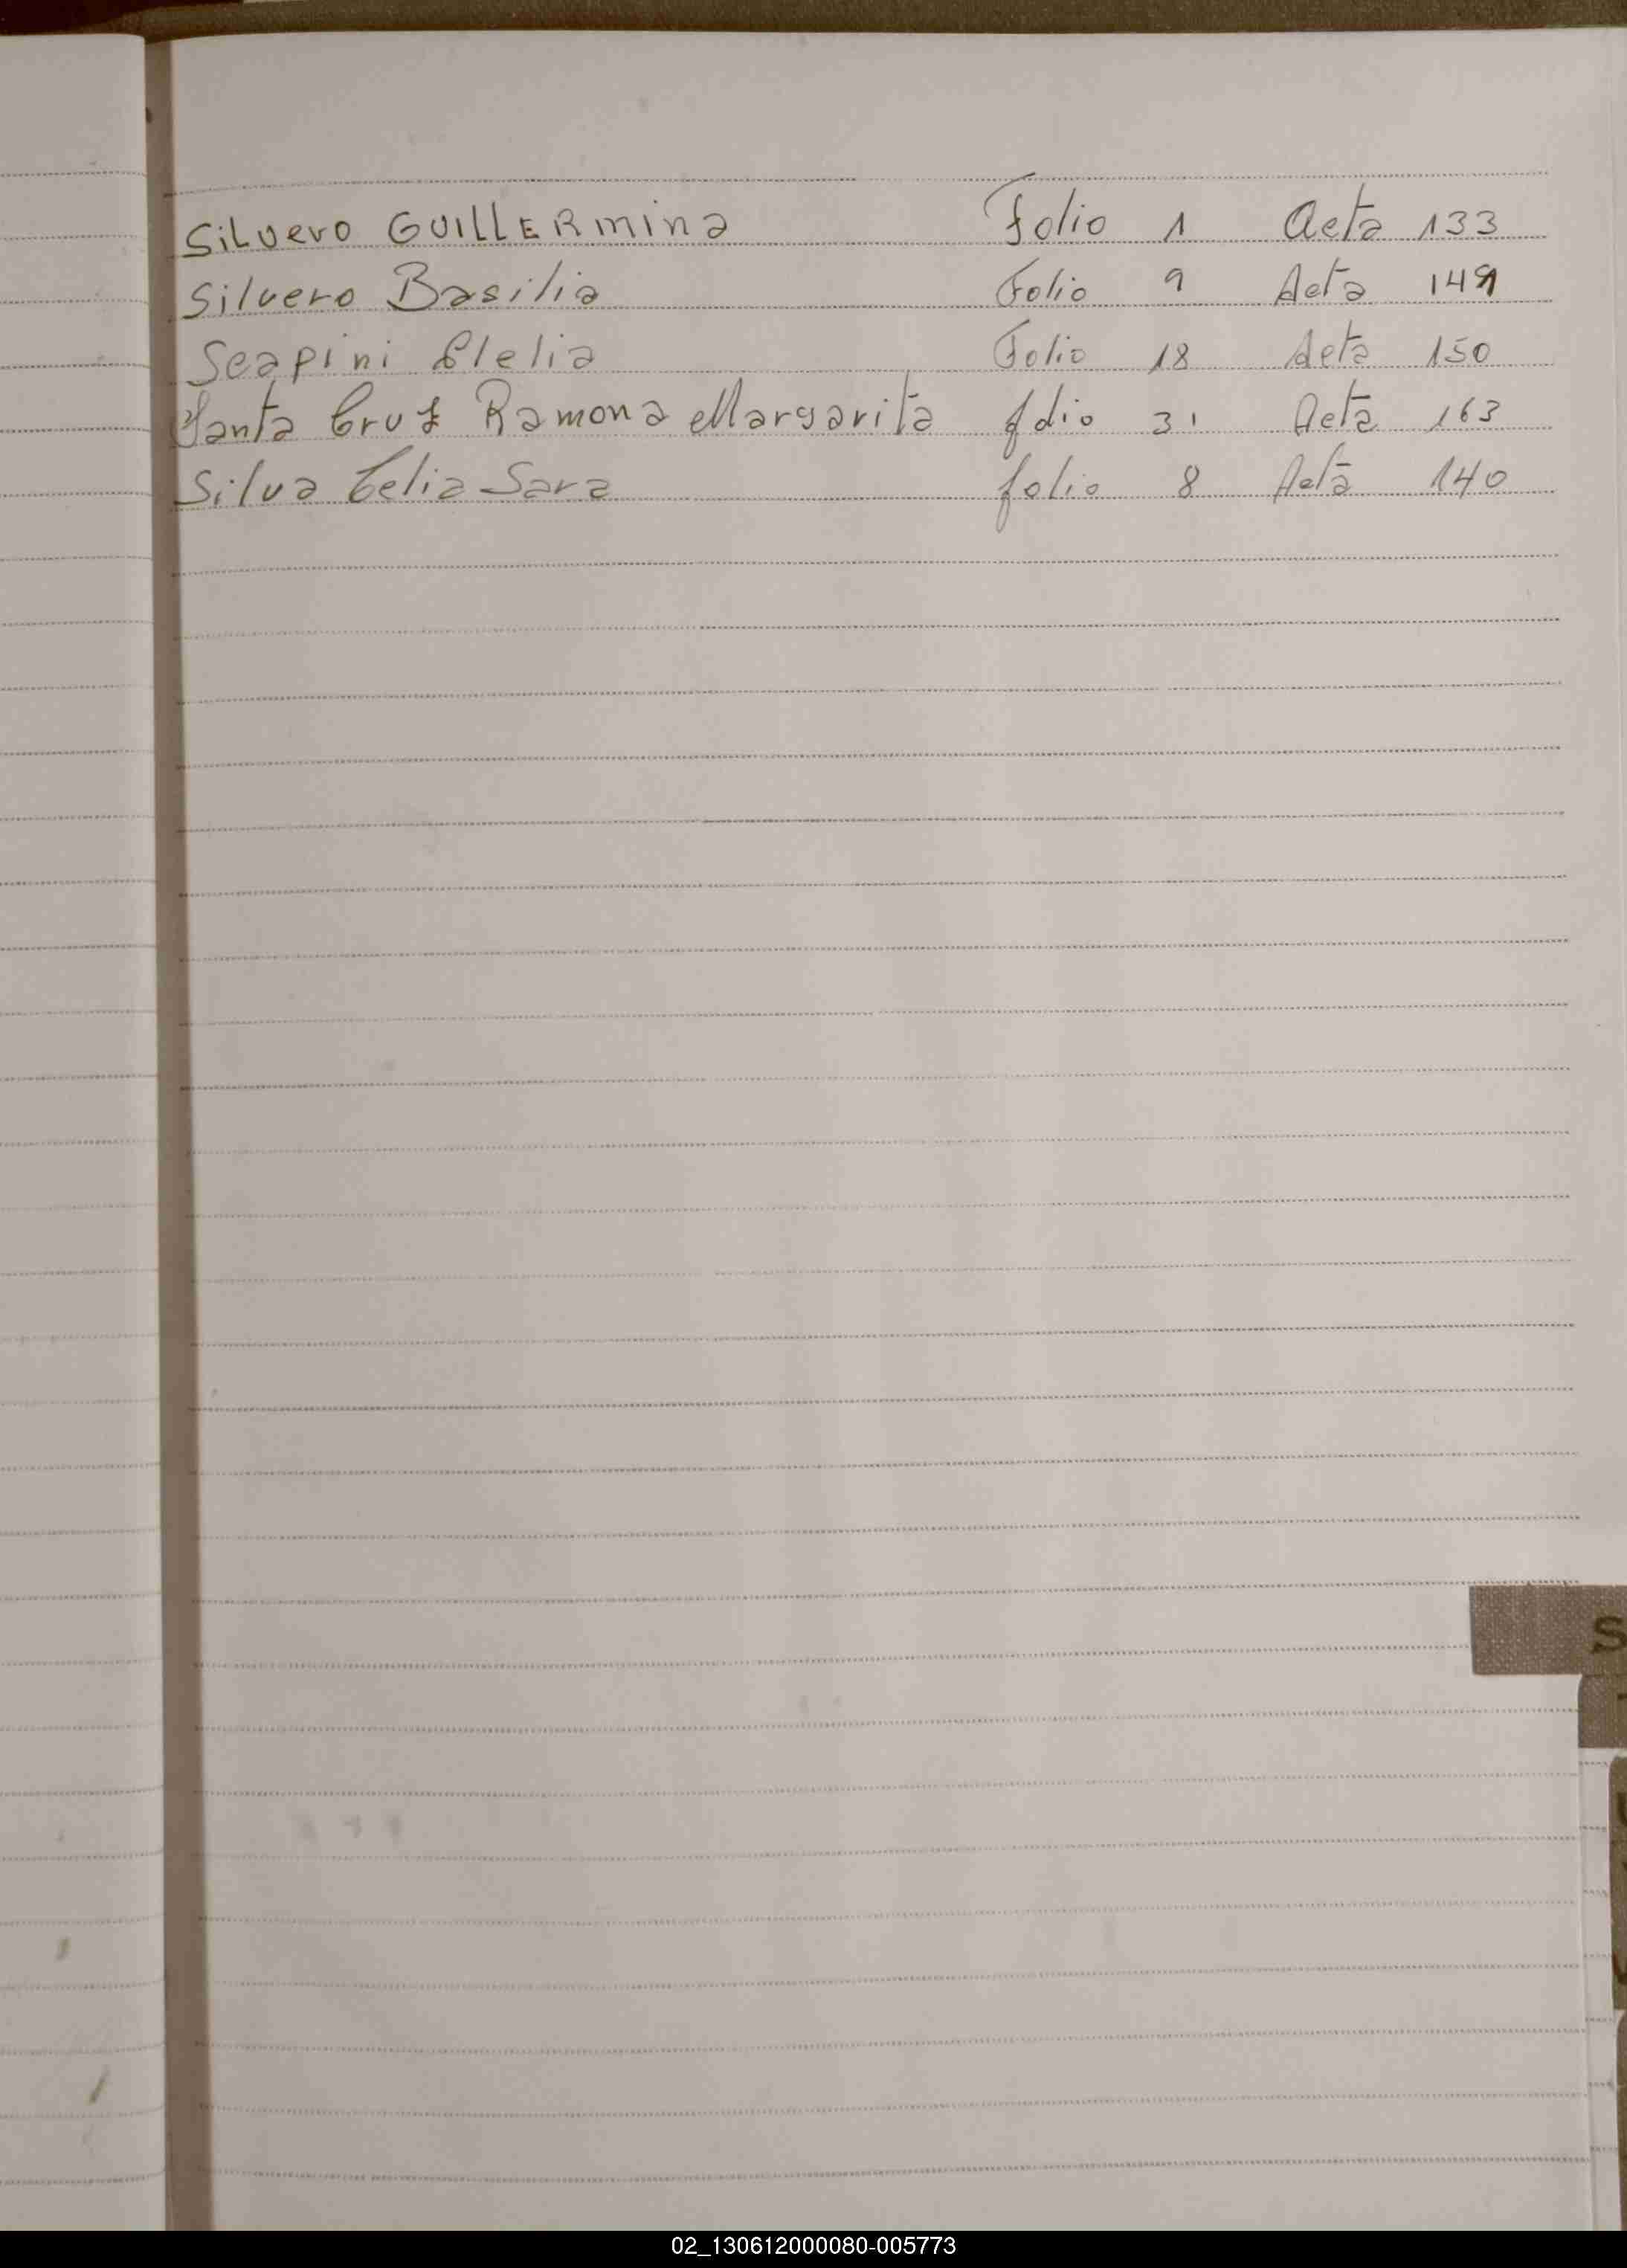 Silvero GUILLERMina Folio 1 Acta 133
Silvero Basilia Folio 9 Acta 141
Scapini Clelia Folio 18 Acta 150
Santa Cruz Ramona Margarita folio 31 Acta 163
Silva Celia Sara folio 8 Acta 140
S
02_130612000080-005773